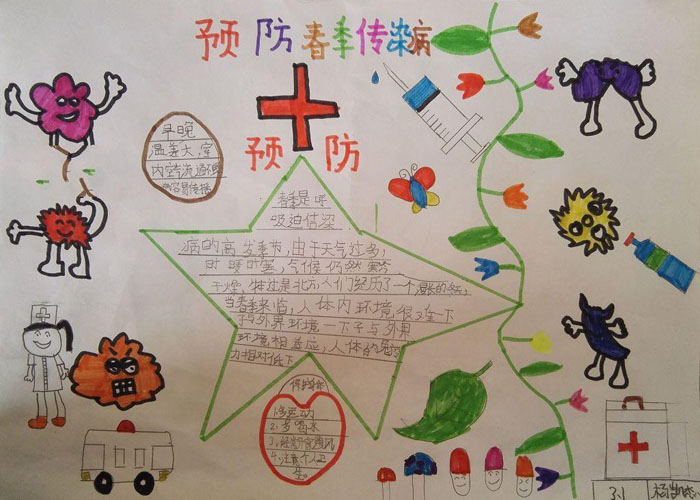 预防春季传染病
预防
早晚
温差大,室
内空气流通不畅
春季是呼
吸道传染
病的高发季节,由于天气过多,
时暖时寒,气候仍然
干燥,特这是北方,人们经历了一个漫长的冬天,
当春季来临,人体内环境很难一下
子与外界环境一下子与外界
环境相适应,人体的免疫
力相对低下
1.多运动
2.多喝水
3.经常开窗通风
4.注意个人卫
生。
3.1